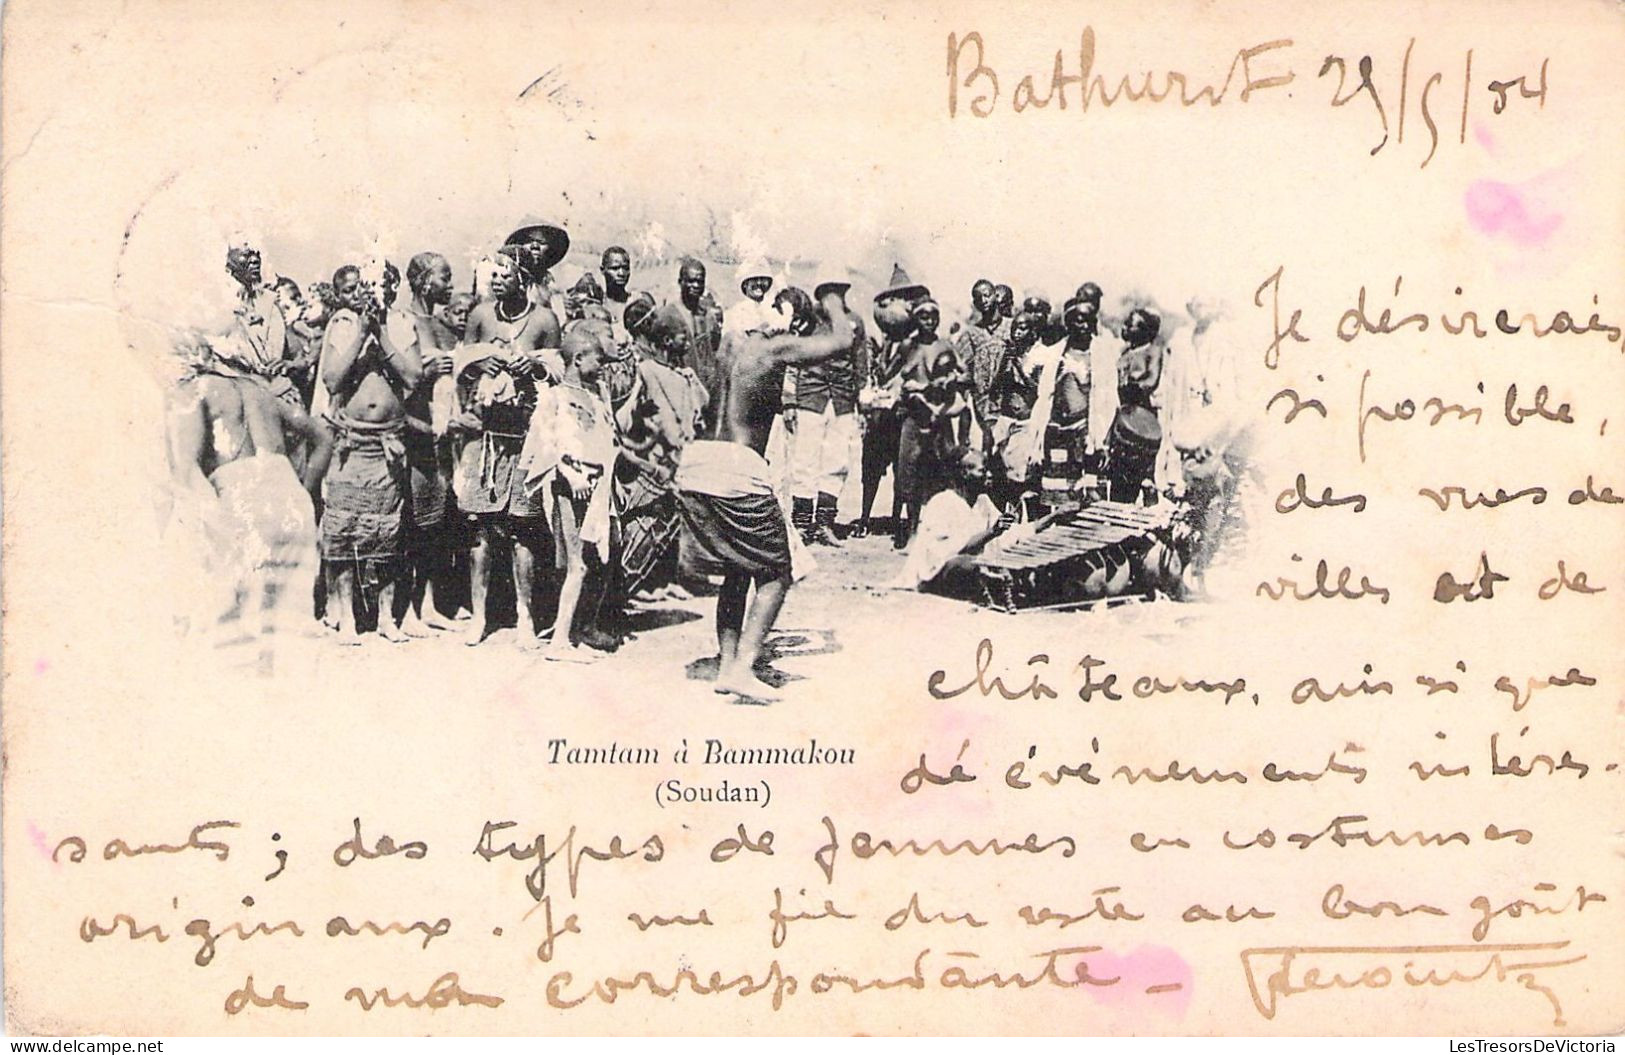 Bathurst 29/5/04
Je désirerais,
si possible,
des vues de
villes et de
châteaux, ainsi que
dé événements intéres-
sants ; des types de femmes en costumes
originaux. Je me fie du reste au bon goût
de ma correspondante -
Tamtam à Bammakou
(Soudan)
LesTresorsDeVictoria